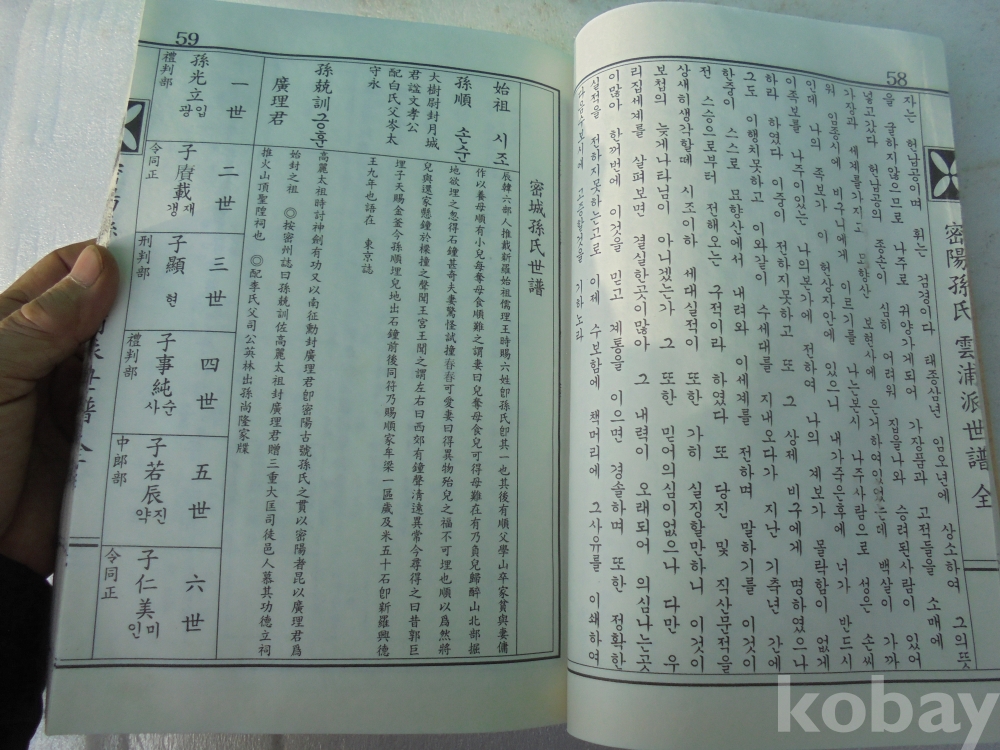 58
密陽孫氏 雲浦派世譜 全
자는 헌납공이며 휘는 검경이다 태종삼년 임오년에 상소하여 그의뜻
을 굴하지않으므로 나주로 귀양가게되어 가장품과 고적들을 소매에
넣고갔다 헌납공의 종손이 심히 어려워 집을나와 승려된사람이 있어
가장과 세계를가지고 묘향산 보현사에 은거하여있었는데 백살이 가까
워 임종시에 비구니에게 이르기를 나는본시 나주사람으로 성은 손씨
인데 나의 족보가 이 헌상자안에 있으니 내가죽은후에 너가 반드시
이족보를 나주에있는 나의본가에 전하여 나의 계보가 몰락함이 없게
하라 하였다 이중이 전하지못하고 또 그 상제 비구에게 명하였으나
그도 이행치못하고 이와같이 수세대를 지내오다가 지난 기축년 간에
한중이 스스로 묘향산에서 내려와 이세계를 전하며 말하기를 이것이
전 스승으로부터 전해오는 구적이라 하였다 또 당진 및 직산문적을
상세히생각할때 시조이하 세대실적이 또한 가히 실징할만하니 이것이
보첩의 늦게나타남이 아니겠는가 그 또한 믿어의심이없으나 다만 우
리집세계를 살펴보면 결실한곳이많아 그 내력이 오래되어 의심나는곳
이많아 한꺼번에 이것을 믿고 계통을 이으면 경솔하며 또한 정확한
실적을 전하지못하는고로 이제 수보함에 책머리에 그사유를 이쇄하여
다음수보시에 고증할것을 기하노라
59
密城孫氏世譜
始祖 시조
辰韓六部人推戴新羅始祖儒理王時賜六姓卽孫氏卽其一也其後有順父學山卒家貧與妻傭
孫順 손순
作以養母順有小兒每奪母食順難之謂妻曰兒奪母食兒可得母難在有乃負兒歸醉山北部掘
地欲埋之忽得石鐘甚奇夫妻驚怪試撞舂舂可愛妻曰得異物殆兒之福不可埋也順以爲然將
大樹尉封月城
兒與還家懸鐘於樑撞之聲聞王宮王聞之謂左右曰西郊有鐘聲清遠異常今尋得之曰昔郭巨
君諡文孝公
埋子天賜金釜今孫順埋兒地出石鐘前後同符乃賜順家牟梁一區歲及米五十石卽新羅興德
配白氏父岑太
王九年也語在 東京誌
守永
孫兢訓 긍훈
高麗太祖時討神劍有功又以南征勳封廣理君卽密陽古號孫氏之貫以密陽者昆以廣理君爲
廣理君
始封之祖 ◎按密州誌曰孫兢訓佐高麗太祖封廣理君贈三重大匡司徒邑人慕其功德立祠
推火山頂聖陸祠也 ◎配李氏父司公英林出孫尚隆家牒
一世
孫光立 광입
禮判部
二世
子賡載 갱재
令同正
三世
子顯 현
刑判部
四世
子事純 사순
禮判部
五世
子若辰 약진
中郎部
六世
子仁美 인미
令同正
kobay